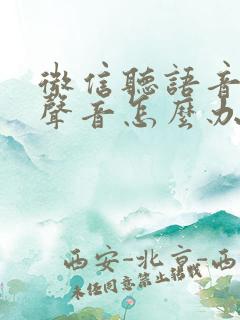 微信聽語音
聲音怎麼办
西安-北京-西
未经同意禁止转载